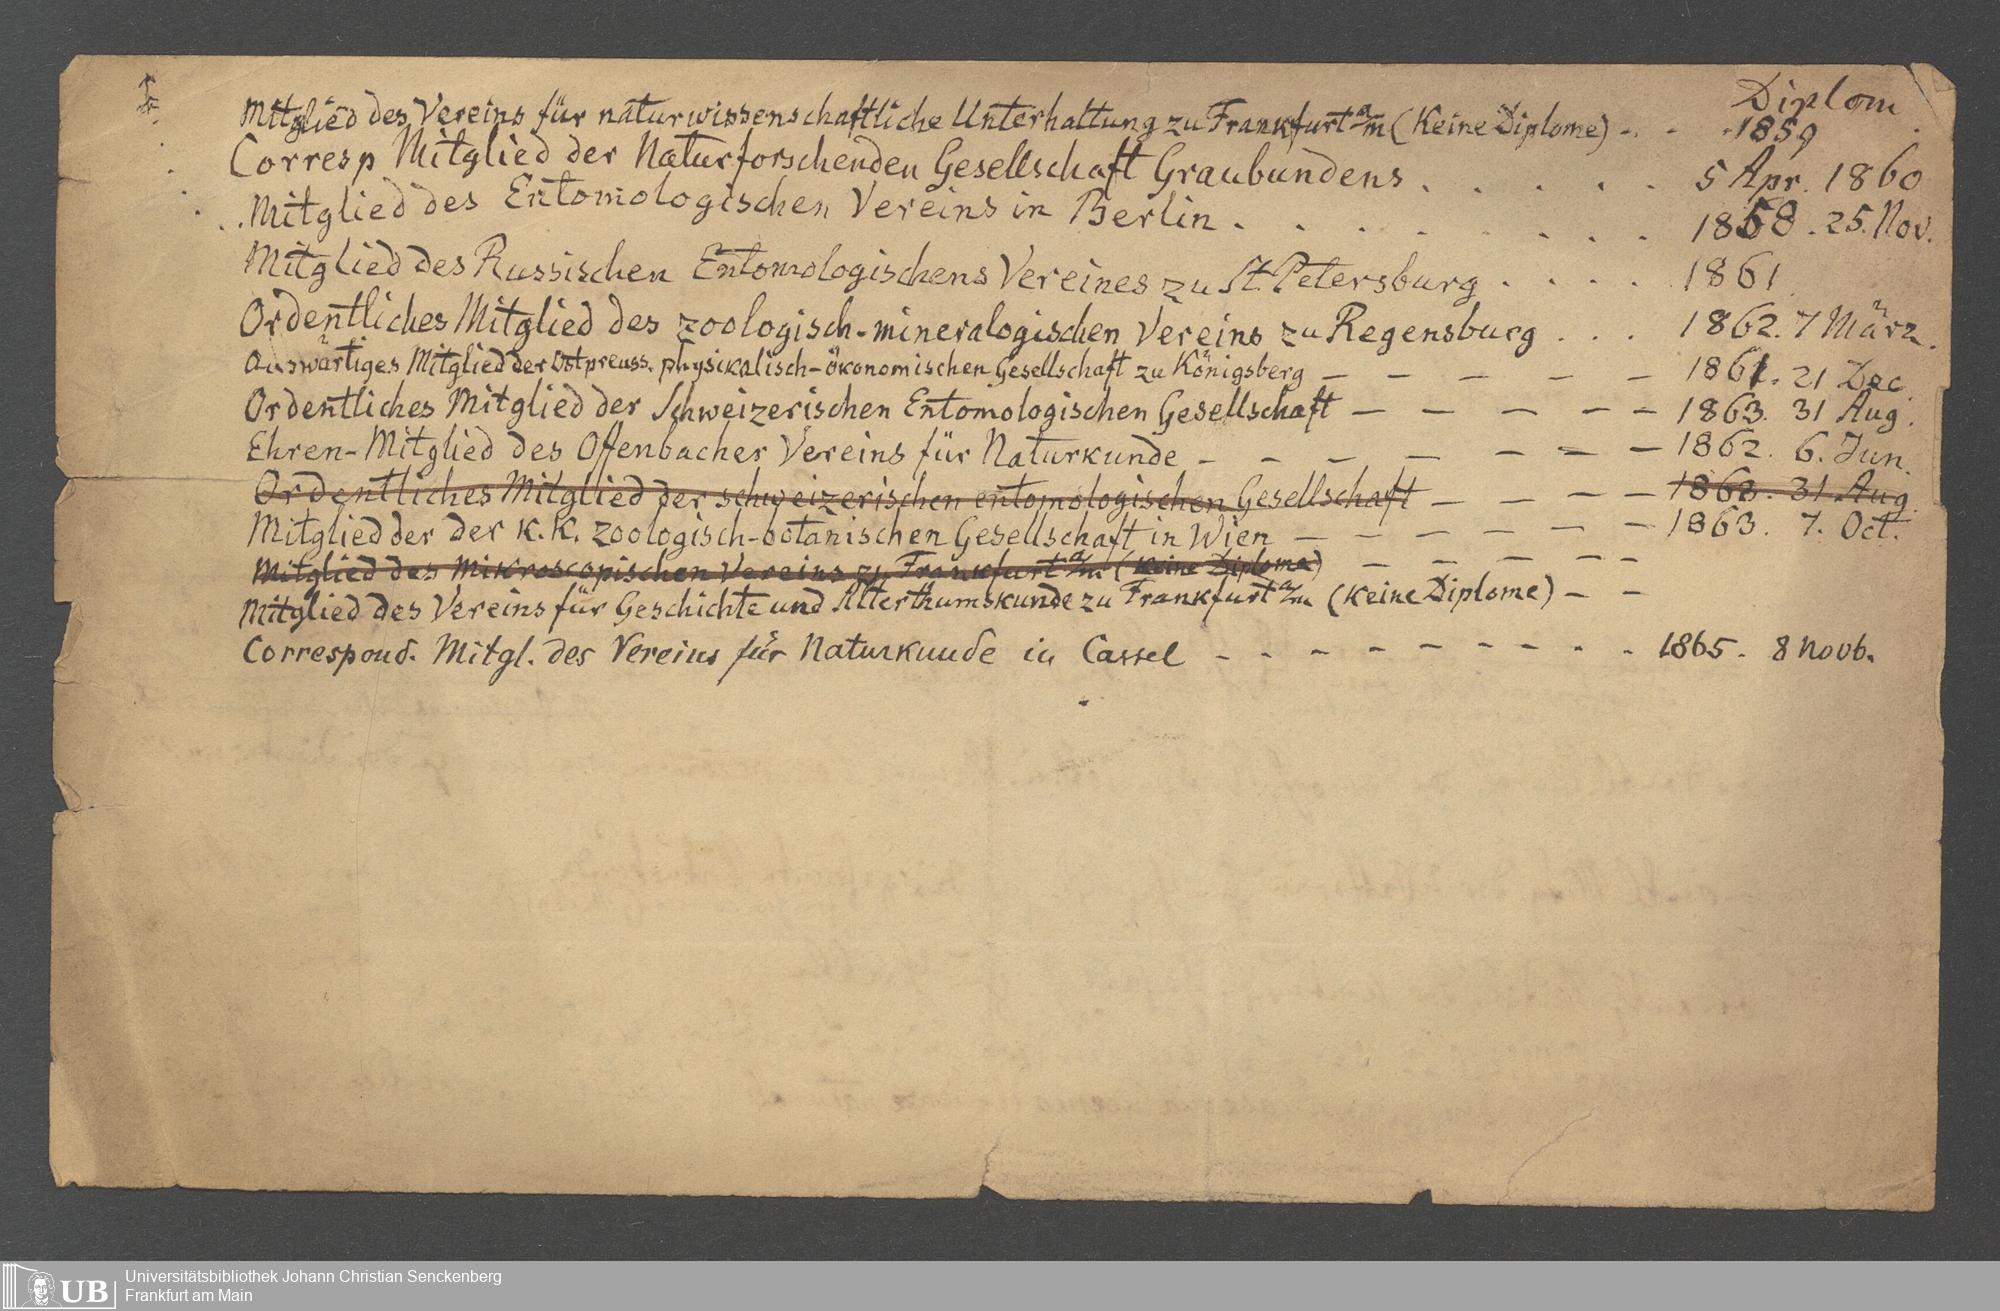 Diplom
Mitglied des Vereins für naturwissenschaftliche Unterhaltung zu Frankfurt a/m (Keine Diplome) - . - . 1859
Corresp Mitglied der Naturforschenden Gesellschaft Graubundens . . . . . 5 Apr. 1860
Mitglied des Entomologischen Vereins in Berlin . . . . . . . . 1858 . 25. Nov.
Mitglied des Russischen Entomologischens Vereines zu St. Petersburg . . . . 1861
Ordentliches Mitglied des zoologisch-mineralogischen Vereins zu Regensburg . . . 1862. 7 März.
Auswärtiges Mitglied der Ostpreuss. physikalisch-ökonomischen Gesellschaft zu Königsberg — — — — — 1861. 21 Dec.
Ordentliches Mitglied der Schweizerischen Entomologischen Gesellschaft — — — — — — 1863. 31 Aug.
Ehren-Mitglied des Offenbacher Vereins für Naturkunde - - - — - — — 1862. 6. Jun.
Ordentliches Mitglied der schweizerischen entomologischen Gesellschaft — — — — — 1863. 31 Aug.
Mitglied der der K. K. zoologisch-botanischen Gesellschaft in Wien — — — — — — 1863. 7. Oct.
Mitglied des Mikroscopischen Vereins zu Frankfurt a/m (Keine Diplome) — — — — — —
Mitglied des Vereins für Geschichte und Alterthumskunde zu Frankfurt a/m (Keine Diplome) — —
Correspond. Mitgl. des Vereins für Naturkunde in Cassel - - - - - - - - - 1865. 8 Novb.
UB
Universitätsbibliothek Johann Christian Senckenberg
Frankfurt am Main